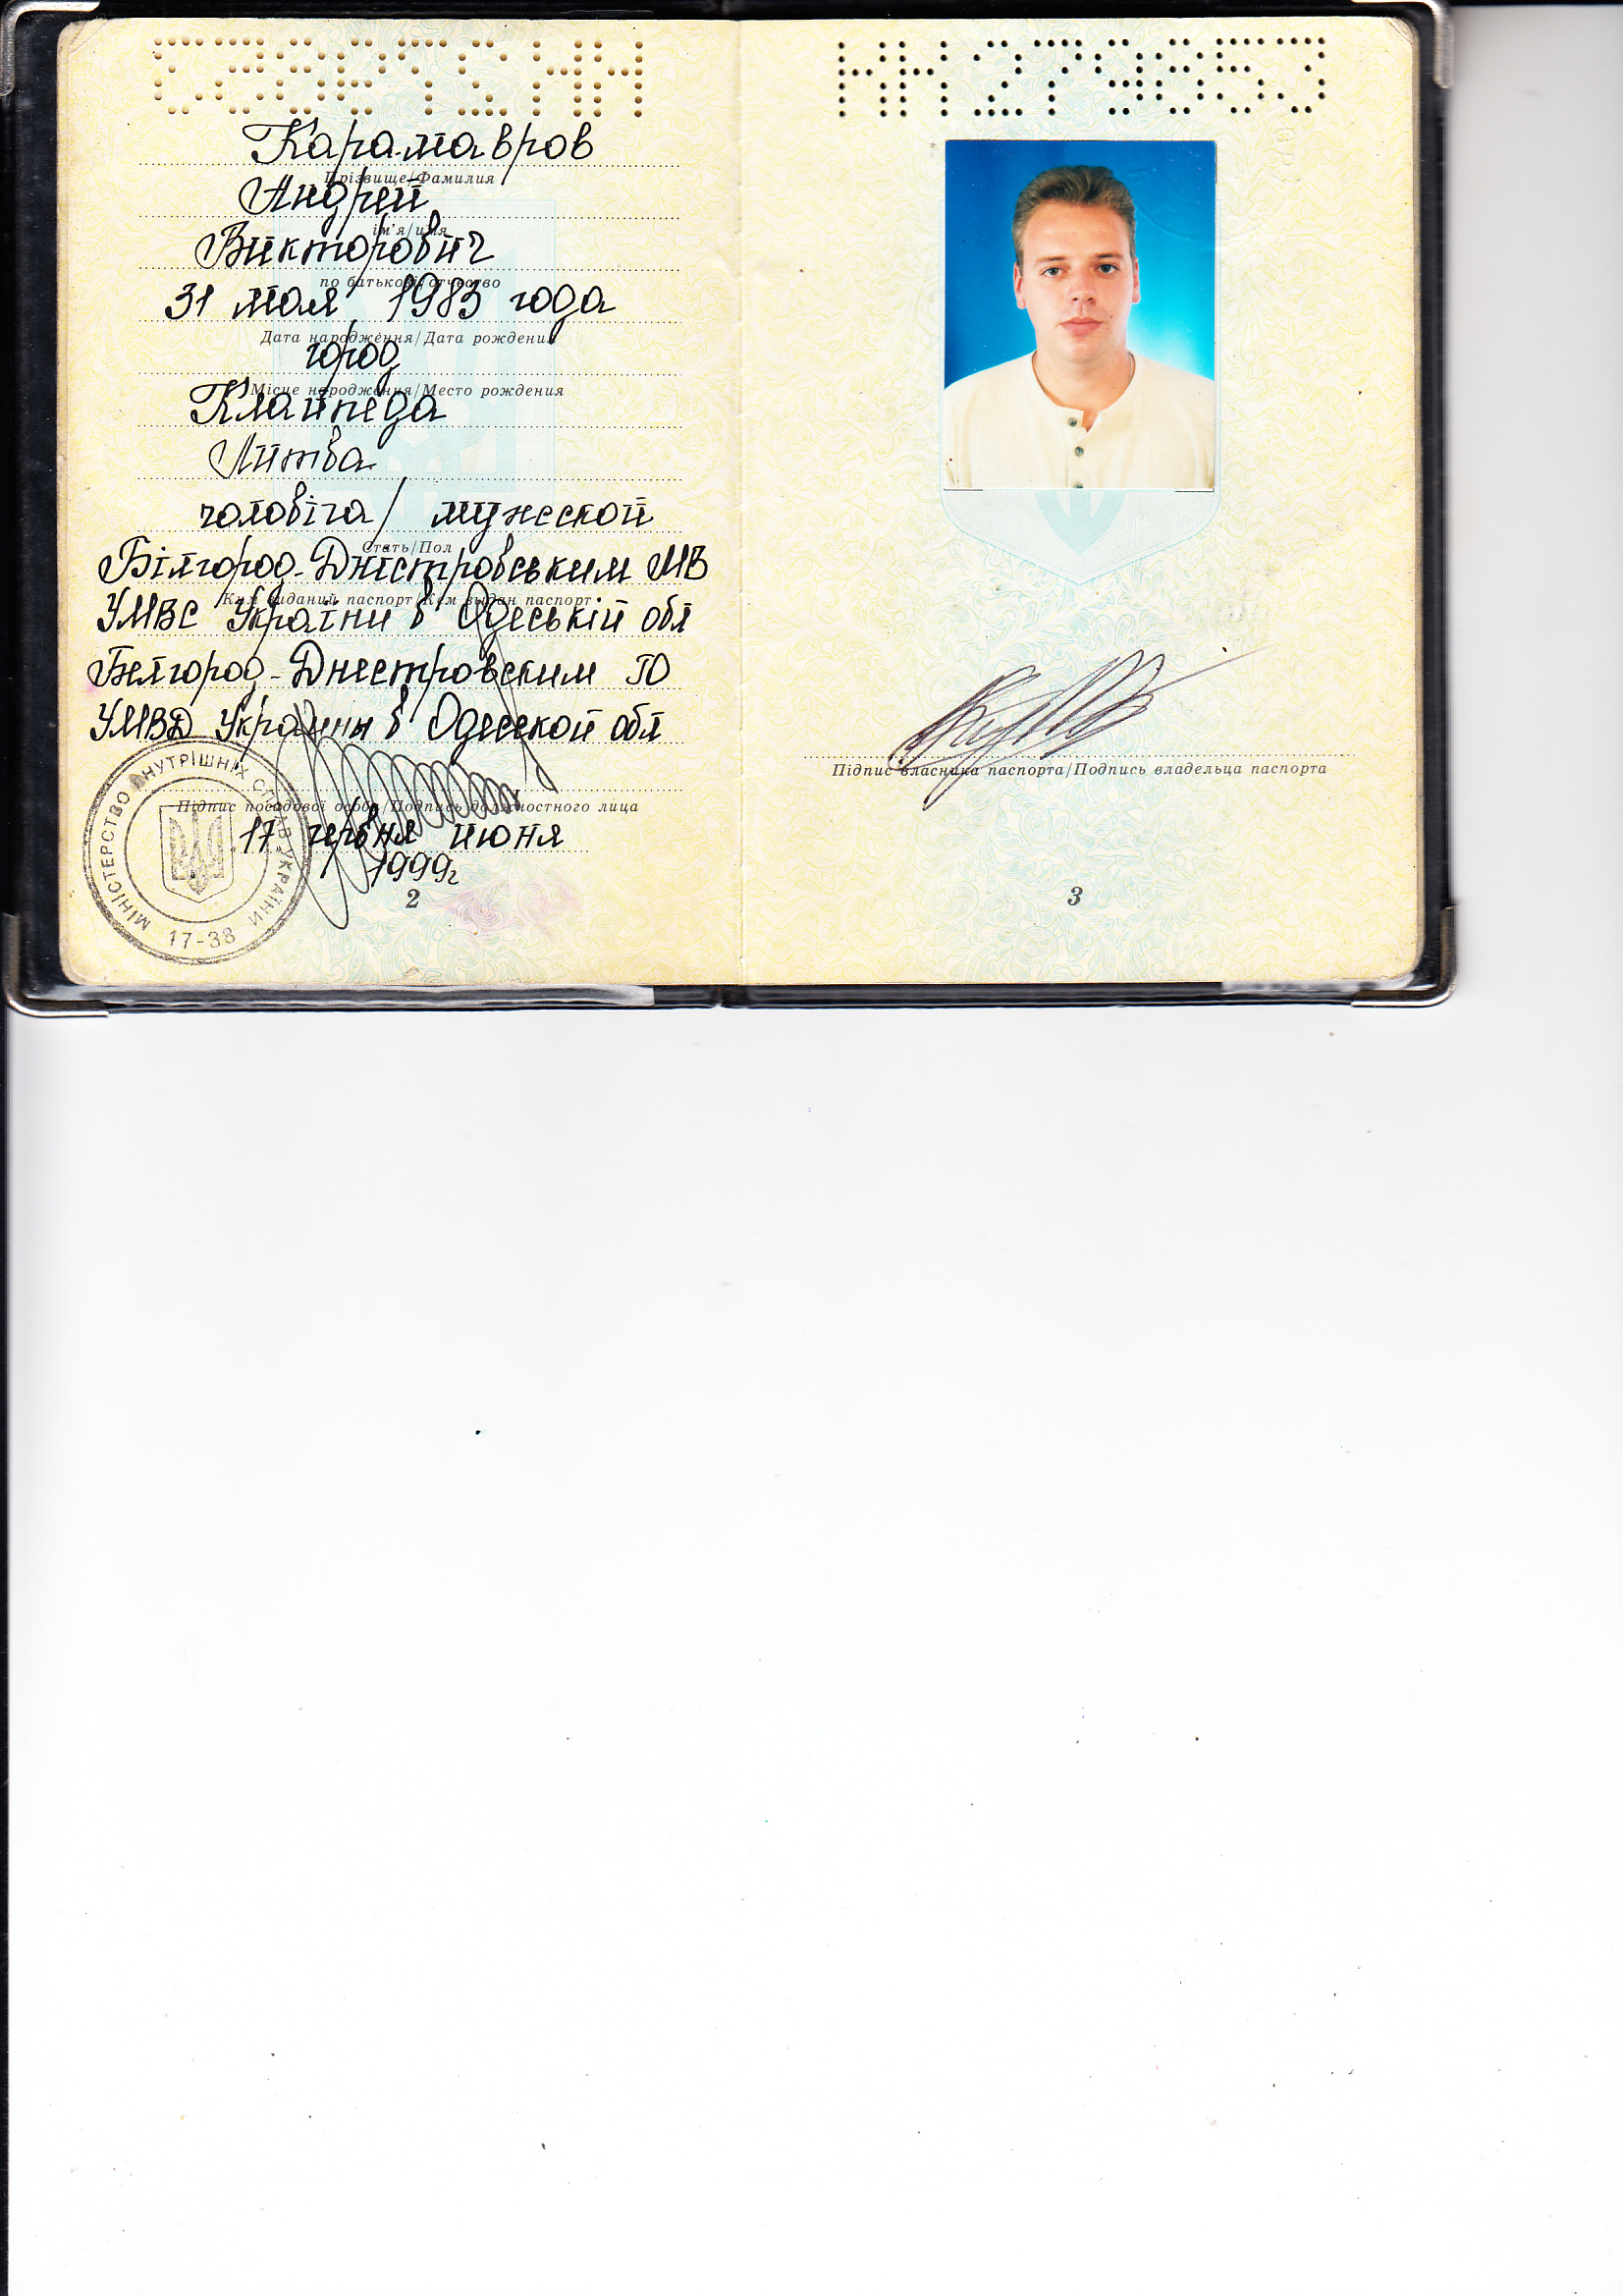 НН279853
Карамавров
Прізвище/Фамилия
Андрей
ім'я/имя
Викторович
по батькові/отчество
31 мая 1983 года
Дата народження/Дата рождения
город
Місце народження/Место рождения
Клайпеда
Литва
чоловіча/ мужской
Стать/Пол
Білгород-Дністровським МВ
Ким виданий паспорт/Кем выдан паспорт
УМВС України в Одеській обл
Белгород-Днестровским ГО
УМВД Украины в Одесской обл
Підпис посадової особи/Подпись должностного лица
17 червня июня
1999г
МІНІСТЕРСТВО ВНУТРІШНІХ СПРАВ УКРАЇНИ
17-38
2
НН279853
Підпис власника паспорта/Подпись владельца паспорта
3